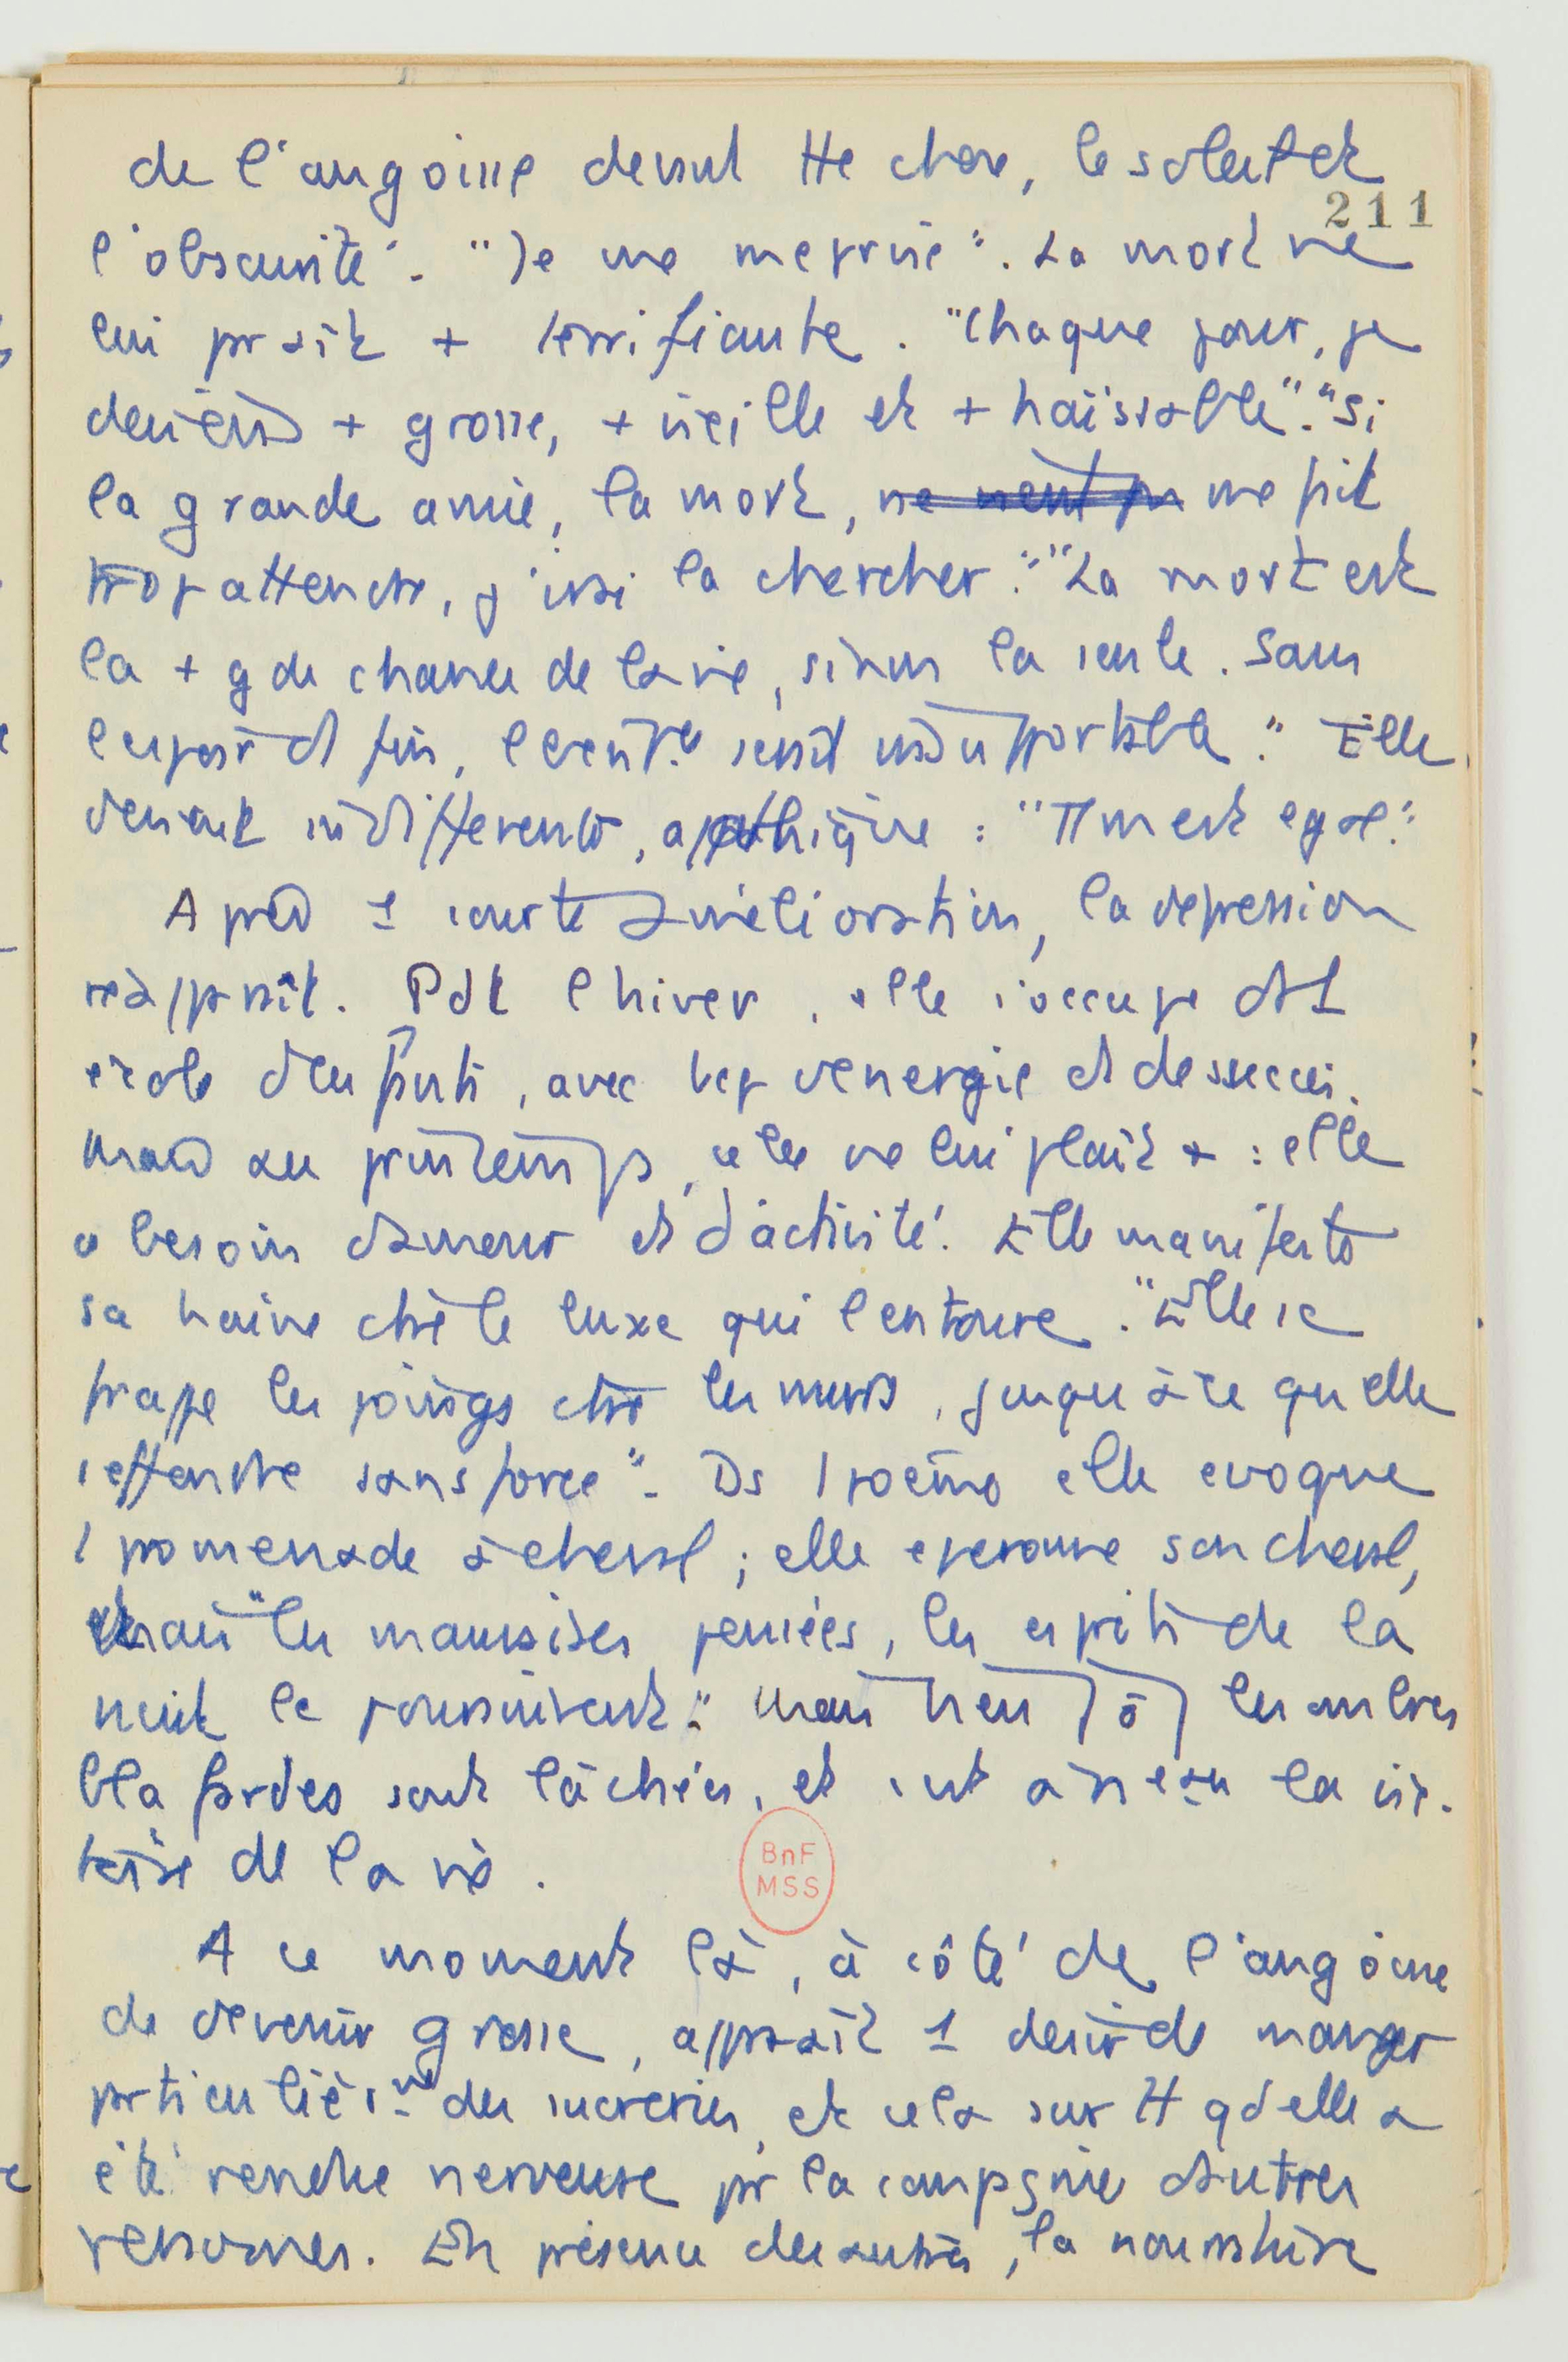 de l'angoisse devant tte chose, le soleil et
211
l'obscurité. "Je me méprise". La mort ne
lui paraît + terrifiante. "Chaque jour, je
deviens + grosse, + vieille et + haïssable". "Si
la grande amie, la mort, ne vient pas me fait
trop attendre, j'irai la chercher." "La mort est
la + gde chance de la vie, sinon la seule. Sans
l'espoir de fin, l'existce serait insupportable." Elle
devient indifférente, apathique : "Tt m'est égal."
Après 1 courte amélioration, la dépression
réapparaît. Pdt l'hiver, elle s'occupe de 1
école d'enfants, avec bcp d'énergie et de succès.
Mais au printemps, cela ne lui plaît + : elle
a besoin d'amour et d'activité. Elle manifeste
sa haine ctre le luxe qui l'entoure. "Elle se
frappe les poings ctre les murs, jusqu'à ce qu'elle
s'effondre sans force". Ds 1 poème elle évoque
1 promenade à cheval ; elle éperonne son cheval,
mais "les mauvaises pensées, les esprits de la
nuit le poursuivent." Mais les ombres
blafardes sont lâchées, et c'est à nveau la
de la vie.
BnF
MSS
A ce moment là, à côté de l'angoisse
de devenir grosse, apparaît 1 désir de manger
particulièrmt des sucreries, et cela surtt qd elle a
été rendue nerveuse par la compagnie d'autres
personnes. En présence des autres, la nourriture